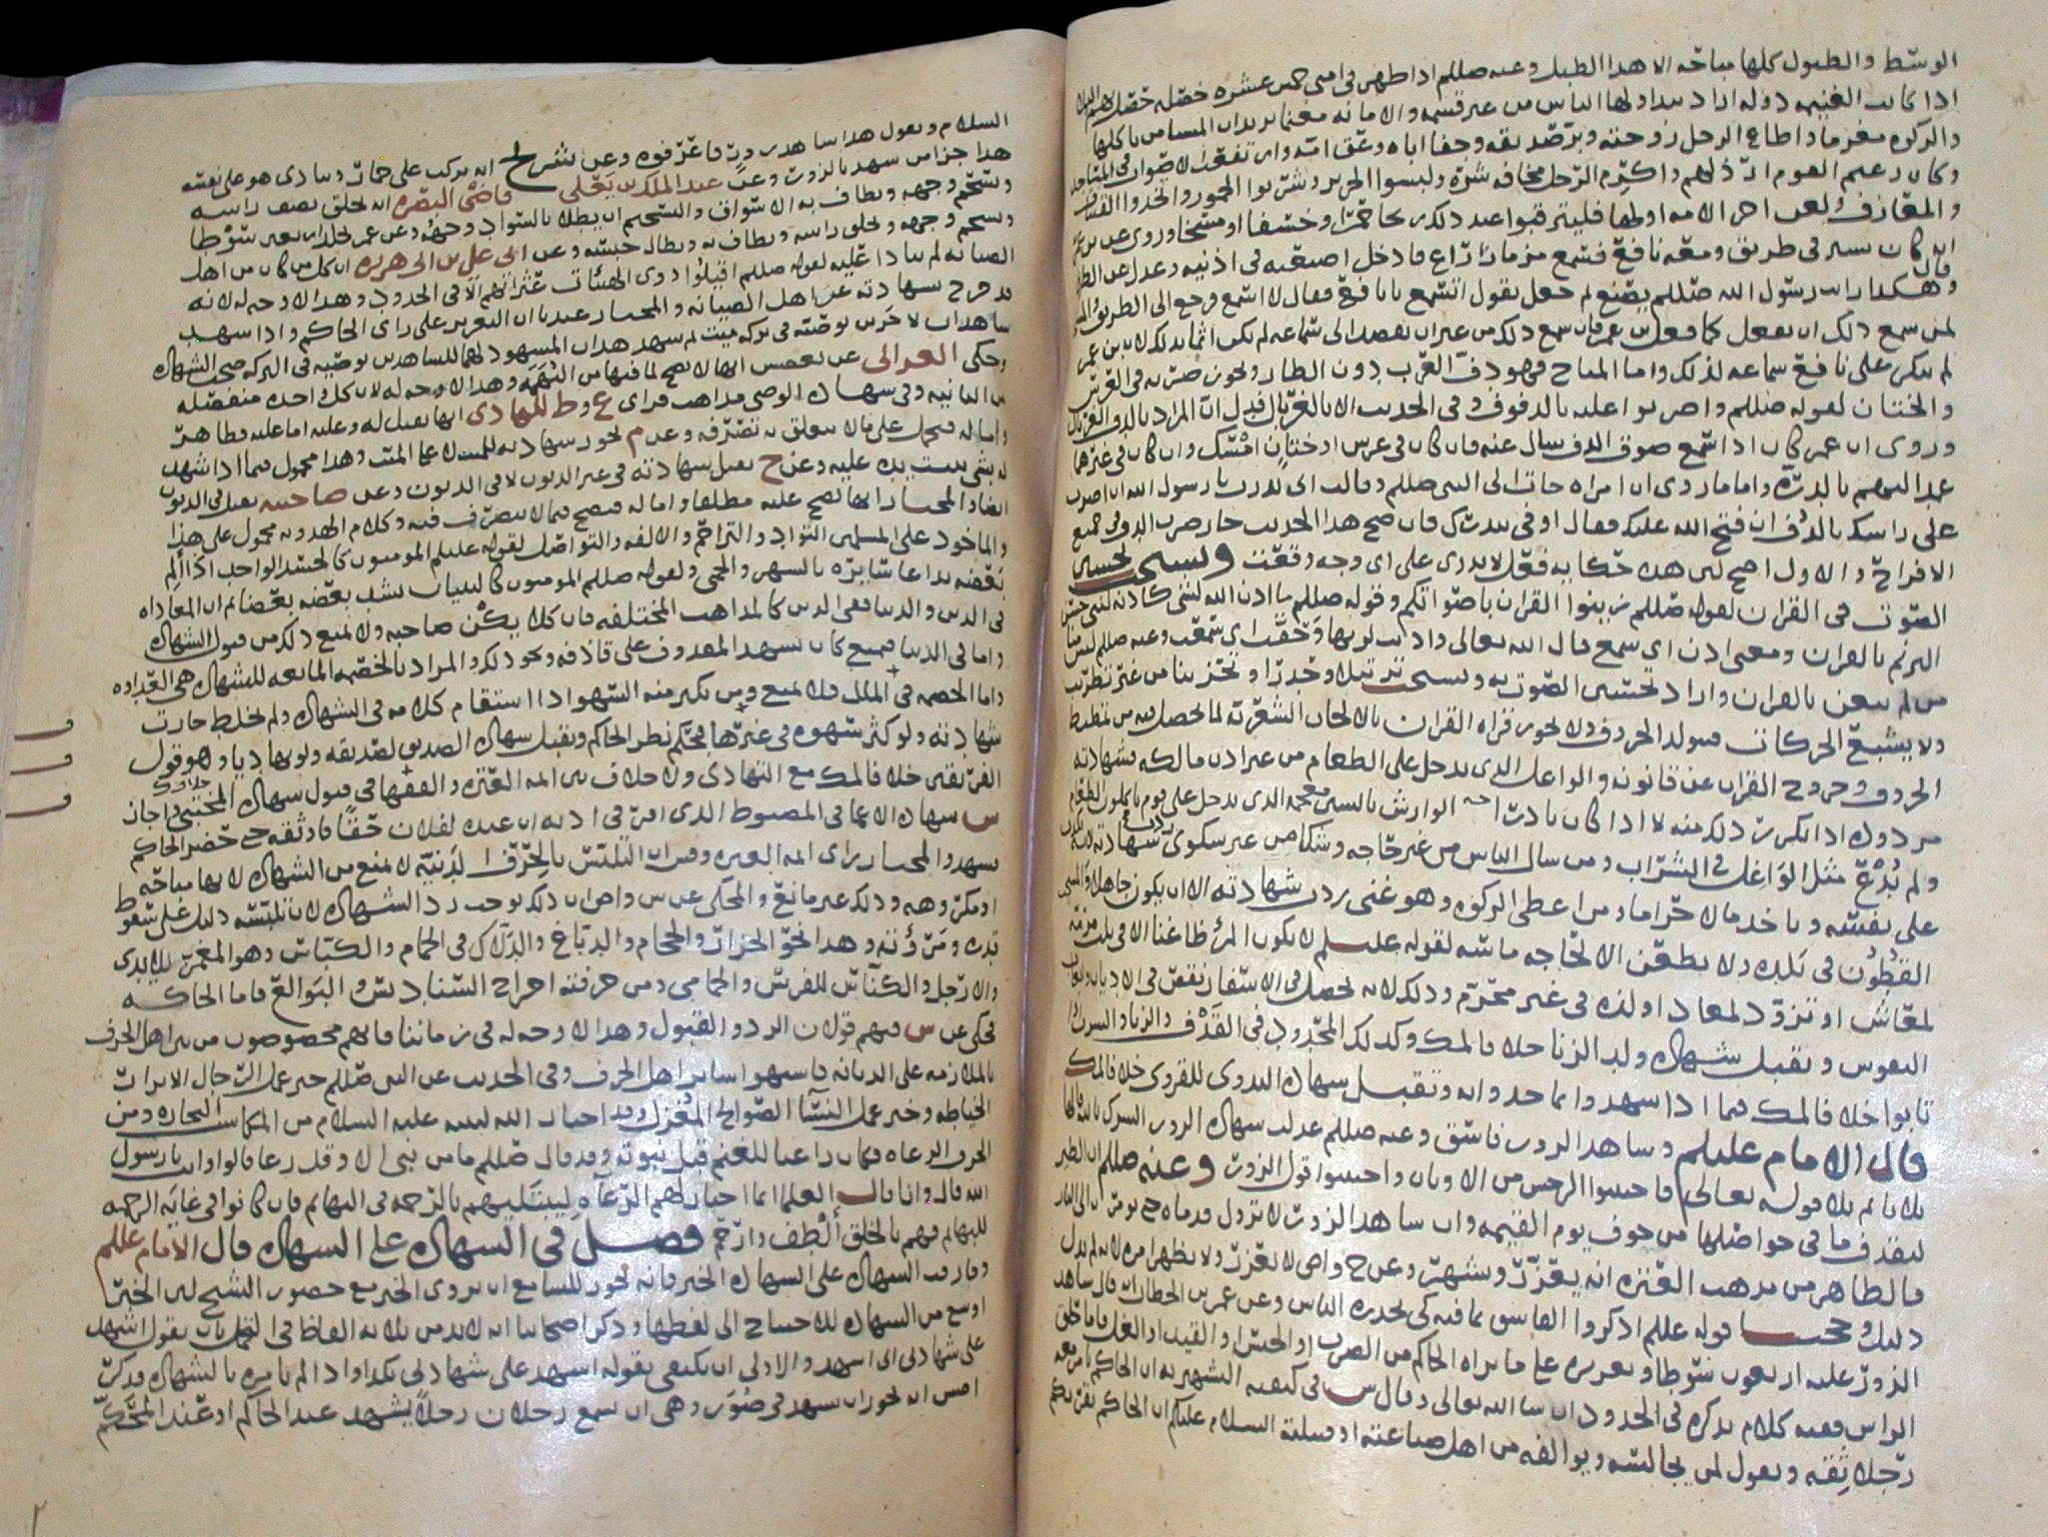 الوسط والطبول كلها مباحه الا هذا الطبل وعنه صللم اذا ظهر في امتي خمس عشره خصله حل بهم البلاء
اذا كانت الغنيمه دوله اذا تداولها الناس من غير قسمه والامانه مغنما يريدان المسلمين ياكلها
والزكوه مغرما واطاع الرجل زوجته وبر صديقه وجفا اباه وعق امه وارتفعت الاصوات في المساجد
وكان زعيم القوم ارذلهم واكرم الرجل مخافه شره ولبسوا الحرير وشربوا الخمور واتخذوا القينات
والمعازف ولعن اخر الامه اولها فليترقبوا عند ذلك ريحا حمرا وخسفا او مسخا وروي عن بن عمر
انه كان يسير في طريق ومعه نافع فسمع مزمار راع فادخل اصبعيه في اذنيه وعدل عن الطريق
وهكذا رايت رسول الله صللم يصنع ثم جعل يقول اتسمع يا نافع فقال لا اسمع فرجع الى الطريق
لمن سمع ذلك ان يفعل كما فعل بن عمر فان سمع ذلك من غير ان يقصد الى سماعه لم يكن اثما بذلك لان بن عمر
لم ينكر على نافع سماعه لذلك واما المباح فهو دف العرب دون الطار ويجوز ضربه في العرس
والختان لقوله صللم واضربوا عليه بالدفوف وفي الحديث الا بالغربال قيل ان المراد بالدف الغربال
وروي ان عمر كان اذا سمع صوت الدف سال عنه فان كان في عرس او ختان امسك وان كان في غيرهما
عمد اليهم بالدره واما ما روي ان امراه جات الى النبي صللم وقالت اني نذرت يا رسول الله ان اضرب
على راسك بالدف ان فتح الله عليك فقال اوفي بنذرك فان صح هذا الحديث جاز ضرب الدف في جميع
الافراح والاول اصح لان هذه حكايه فعل لا يدرى على اي وجه وقعت ويستحب تحسين
الصوت في القران لقوله صللم زينوا القران باصواتكم وقوله صللم ما اذن الله لشي كاذنه لنبي حسن
الترنم بالقران ومعنى اذن اي سمع قال الله تعالى واذنت لربها وحقت اي سمعت وعنه صللم ليس منا
من لم يتغن بالقران واراد تحسين الصوت به ويستحب ترتيلا وحدرا وتحزينا من غير تطريب
ولا يشبع الحركات فتولد الحروف ولا يجوز قراه القران بالالحان الشعريه لما يحصل فيه من تمطيط
الحروف وخروج القران عن قانونه والواغل الذي يدخل على الطعام من غير اذن مالكه فشهادته
مردوده اذا تكرر ذلك منه لا اذا كان نادرا الوارش بالشين معجمه الذي يدخل على قوم ياكلون الطعام
ولم يدع مثل الواغل في الشراب ومن سال الناس من غير حاجه وشكا من غير شكوى ردت شهادته لانه يكذب
على نفسه وياخذ مالا حراما ومن اعطي الزكوه وهو غني بردت شهادته الا ان يكون جاهلا
القطون في بلده ولا يظعن الا لحاجه ماسه لقوله عليلم لا يكون المرء ظاعنا الا في ثلث مرمه
لمعاش او تزود لمعاد او لذه في غير محرم وذلك لانه يحصل في الاسفار نقص في الاديان
النفوس وتقبل شهاده ولد الزنا خلا فالمك وكذلك المحدود في القذف والزنا
تابوا خلا فالمك فيما اذا شهدوا بما حدوا به وتقبل شهاده البدوي للقروي خلا فالمك
قال الامام عليلم وشاهد الزور فاسق وعنه صللم عدلت شهاده الزور الشرك بالله قالها
ثلاثا ثم تلا قوله تعالى فاجتنبوا الرجس من الاوثان واجتنبوا قول الزور وعنه صللم ان الطير
لتقذف ما في حواصلها من خوف يوم القيمه وان شاهد الزور لا تزول قدماه حتى يؤمر به الى النار
فالظاهر من مذهب العتره انه يعزر ويشهر وعن ح واص لا يعزر ولا يظهر امره لانه لم يدل
دليل وحجتنا قوله عللم اذكروا الفاسق بما فيه كي يحذره الناس وعن عمر بن الخطاب قال شاهد
الزور عليه اربعون سوطا وتعزيره على ما يراه الحاكم من الضرب او الحبس او القيد او الغل فاما حلق
الراس ففيه كلام نذكره في الحدود ان شا الله تعالى وقال س في كيفيه التشهير به ان الحاكم يامر معه
رجلا ثقه ويقول لمن يجالسه ويوالفه من اهل صناعته او قبيلته السلام عليكم ان الحاكم يقريكم
السلام ويقول هذا شاهد زور فاعرفوه وعن شريح انه يركب على حمار وينادي هو على نفسه
هذا جزا من شهد بالزور وعن عبد الملك بن يعلى قاضي البصره انه يحلق نصف راسه
ويسخم وجهه ويطاف به الاسواق والتسخيم ان يطلا بالسواد وجهه وعن عمر يجلد اربعين سوطا
ويسخم وجهه ويحلق راسه ويطاف به ويطال حبسه وعن ابي علي بن ابي هريره ان كل من كان من اهل
الصيانه لم ينادا عليه لقوله صللم اقيلوا ذوي الهيئات عثراتهم الا في الحدود وهذا لا وجه له لانه
قد خرج بشهادته عن اهل الصيانه والمختار عندنا ان التعزير على راي الحاكم واذا شهد
شاهدان لاخرين بوصيه في تركه ميت ثم شهد هذان المشهود لهما للشاهدين بوصيه في التركه صحت الشهاده
وحكى الغزالي عن بعضهم انها لا تصح لما فيها من التهمه وهذا لا وجه له لان كل واحده منفصله
عن الثانيه وفي شهاده الوصي مذاهب فراي ع وط للهادي انها تقبل له وعليه اما عليه فظاهر
واما له فيحمل على ما لا يتعلق به تصرفه وعن م تجوز شهادته للميت لا على الميت وهذا محمول فيما اذا شهد
له بشي يثبت يده عليه وعن ح تقبل شهادته في غير الديون لا في الديون وعن صاحبيه تقبل في الديون
ايضا والمختار انها تصح عليه مطلقا واما له فتصح فيما لا يتصرف فيه وكلام المهدويه محمول على هذا
والماخوذ على المسلمين التوادد والتراحم والالفه والتواصل لقوله عليلم المومنون كالجسد الواحد اذا الم
بعضه تداعا سائره بالسهر والحمى ولقوله صللم المومنون كالبنيان يشد بعضه بعضا ثم ان المعاداه
في الدين والدنيا ففي الدين كالمذاهب المختلفه فان كلا يبكت صاحبه ولا يمنع ذلك من قبول الشهاده
واما في الدنيا فيمنع كان يشهد المقذوف على قاذفه ونحو ذلك والمراد بالخصمه المانعه للشهاده هي العداوه
واما الخصمه في الملك فلا تمنع ومن يكثر منه السهو اذا استقام كلامه في الشهاده ولم يخلط جازت
شهادته ولو كثر سهوه في غيرها فيحكم نظر الحاكم وتقبل شهاده الصديق لصديقه ولو تهاديا وهو قول
الفريقين خلا فالمك مع التهادي ولا خلاف بين ائمه العتره والفقها في قبول شهاده المختبي واجاز
خلاف ك
س شهاده الاعما في المضبوط الذي اقر في اذنه ان عنده لفلان حقا فاوثقه حتى حضر الحاكم
فشهد والمختار براي ائمه العتره ومن ان التلبس بالحرف الدنيه لا يمنع من الشهاده لانها مباحه
او مكروهه وذلك غير مانع والمحكي عن س واص ان ذلك يوجب رد الشهاده لان تلبسه دليل على سقوط
قدره ومروته وهذا نحو الجزار والحجام والدباغ والدلاك في الحمام والكباس وهو المغمز للايدي
والارجل والكناس للفرش والحمامي ومن حرفته اخراج السنابدس والبوالع فاما الحاكه
فحكي عن س فيهم قولان الرد والقبول وهذا لا وجه له في زماننا فانهم مخصوصون من بين اهل الحرف
بالملازمه على الديانه فاشبهوا سائر اهل الحرف وفي الحديث عن النبي صللم خير عمل الرجال الابرار
الخياطه وخير عمل النسا الصوالح المغزل وقد اختار الله لنبيه عليه السلام من المكاسب التجاره ومن
الحرف الرعاه فكان راعيا للغنم قبل نبوته وقد قال صللم ما من نبي الا وقد رعا قالوا وانت يا رسول
الله قال وانا قالت العلما انما اختار لهم الرعاه ليبتليهم بالرحمه في البهائم فان كانوا في غايه الرحمه
للبهائم فهم بالخلق الطف وارحم فصل في الشهاده على الشهاده قال الامام عللم
وفارقت الشهاده على الشهاده الخبر فانه يجوز للسامع ان يروي الخبر مع حضور الشيخ لان الخبر
اوسع من الشهاده فلا يحتاج الى لفظها وذكر اصحابنا انه لا بد من ثلاثه الفاظ في التحمل بان يقول اشهد
على شهادتي اني اشهد والاولى ان يكتفي بقوله اشهد على شهادتي بكذا واذا لم يامره بالشهاده فذكر
اص انه يجوز ان يشهد في صور وهي ان يسمع رجلان رجلا يشهد عند الحاكم او عند المحكم